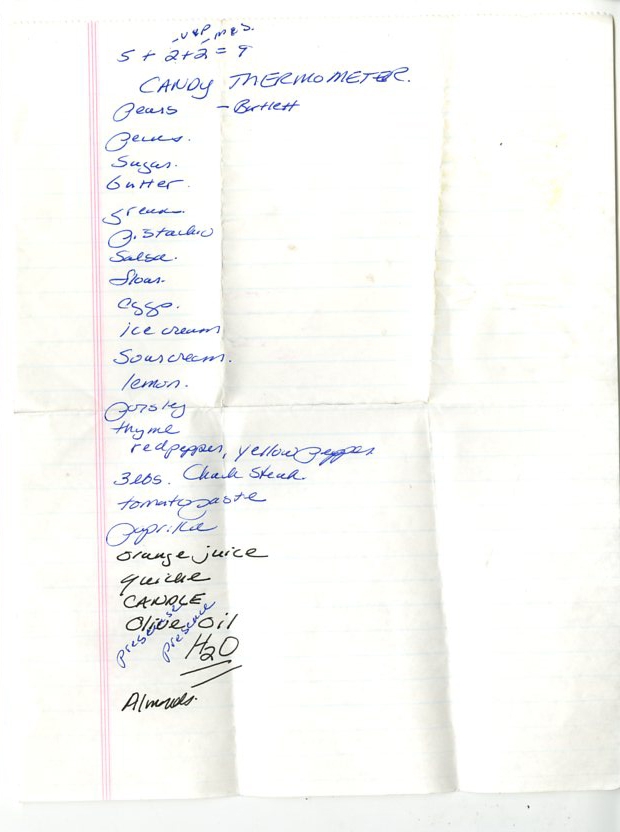 V&P M&S.
5 + 2 + 2 = 9
CANDY THERMOMETER.
Pears - Bartlett
Sugar.
butter.
Pistachio
Salsa.
flour.
eggs.
ice cream
Sour cream.
lemon.
parsley
thyme
red pepper, yellow pepper
3 lbs. Chuck Steak.
tomato paste
paprika
orange juice
quiche
CANDLE
Olive Oil
presence
H2O
Almonds.